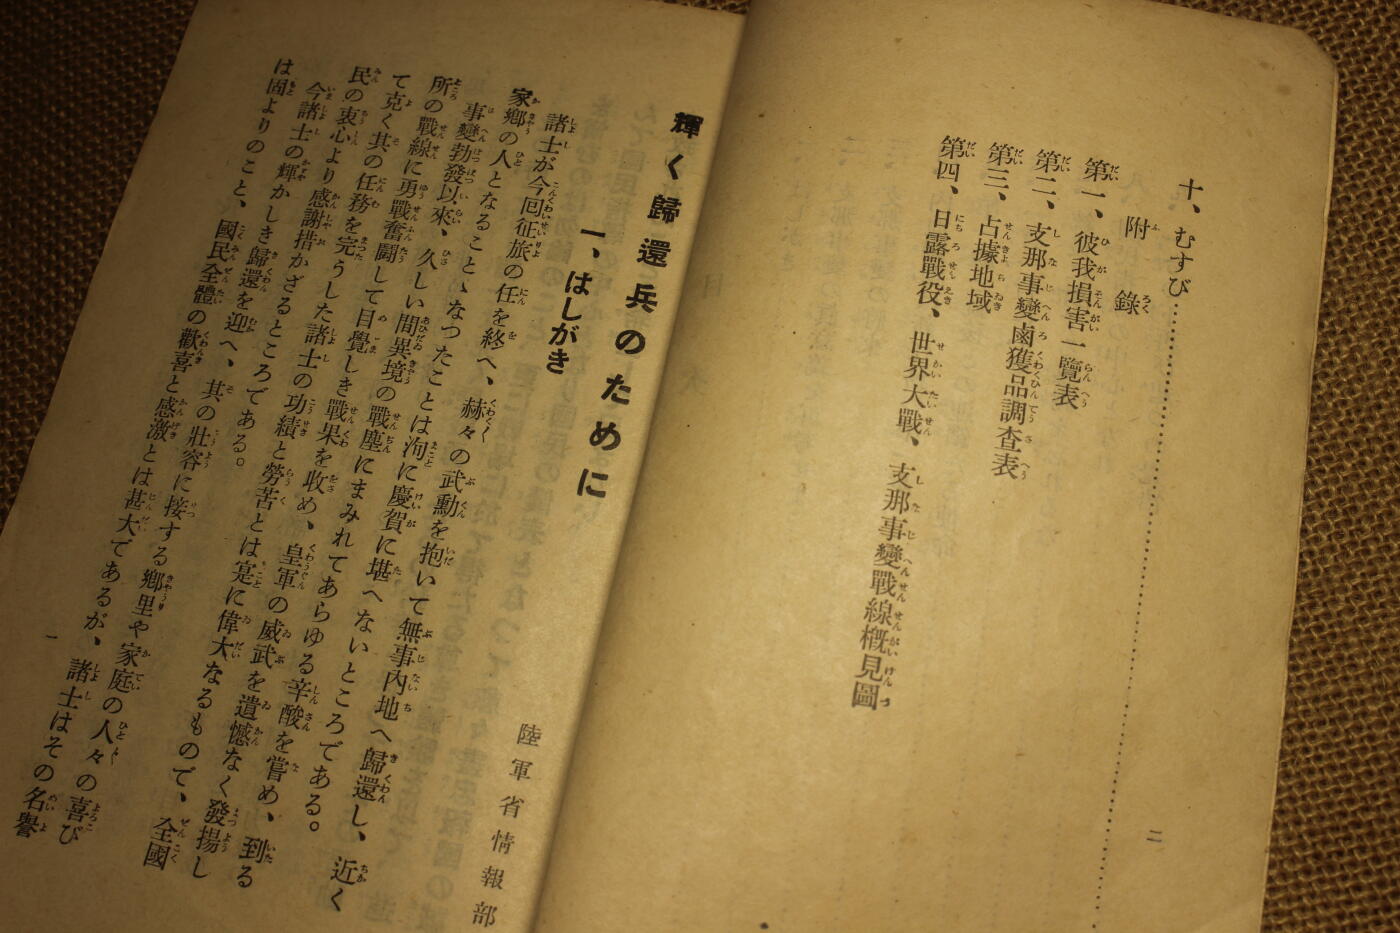 十、むすび
附錄
第一、彼我損害一覽表
第二、支那事變鹵獲品調査表
第三、占據地域
第四、日露戰役、世界大戰、支那事變戰線槪見圖
二
輝く歸還兵のために
陸軍省情報部
一、はしがき
諸士が今回征旅の任を終へ、赫々の武勳を抱いて無事內地へ歸還し、近く
家鄕の人となることゝなつたことは洵に慶賀に堪へないところである。
事變勃發以來、久しい間異境の戰塵にまみれてあらゆる辛酸を嘗め、到る
所の戰線に勇戰奮鬪して目覺しき戰果を收め、皇軍の威武を遺憾なく發揚し
て克く其の任務を完うした諸士の功績と勞苦とは寔に偉大なるもので、全國
民の衷心より感謝措かざるところである。
今諸士の輝かしき歸還を迎へ、其の壯容に接する鄕里や家庭の人々の喜び
は固よりのこと、國民全體の歡喜と感激とは甚大であるが、諸士はその名譽
一